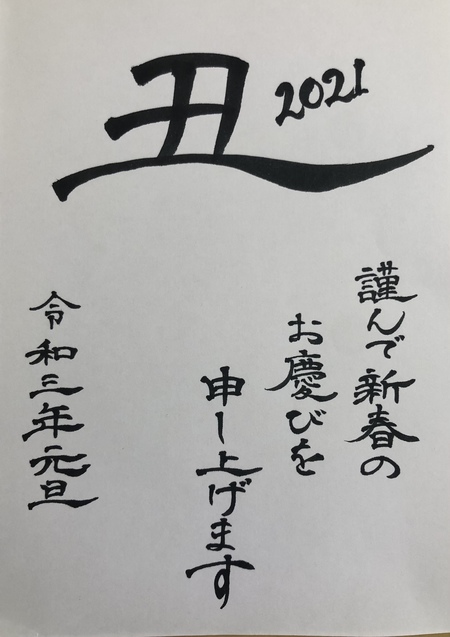 丑
2021
謹んで新春の
お慶びを
申し上げます
令和三年元旦